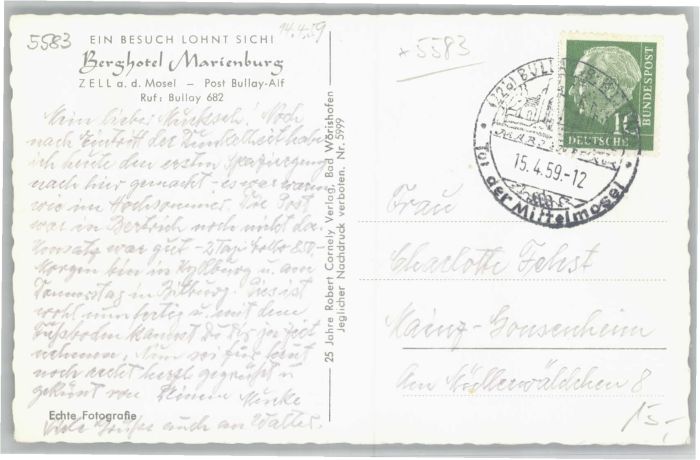 5583
14.4.59
EIN BESUCH LOHNT SICH!
Berghotel Marienburg
ZELL a. d. Mosel — Post Bullay-Alf
Ruf: Bullay 682
Mein lieber ! Noch
nach Eintritt der Dunkelheit habe
ich heute den ersten Spaziergang
nach hier gemacht - es war warm
wie im Hochsommer. Die Post
war in Bertrich noch nicht da.
war gut -
Morgen bin in Kyllburg u. am
Donnerstag in Bitburg. Dies ist
wohl nun fertig u. mit dem
Fußboden kannst Du
nehmen. Nun sei für heut
noch recht herzl. gegrüßt u.
geküsst von Deinem
Viele Grüße auch an Walter.
Echte Fotografie
25 Jahre Robert Cornely Verlag, Bad Wörishofen
Jeglicher Nachdruck verboten. Nr. 5999
+5583
(22b) BULLAY
15.4.59.-12
Tor der Mittelmosel
DEUTSCHE
BUNDESPOST
Frau
Charlotte
Mainz-Gonsenheim
Am 8
15,-